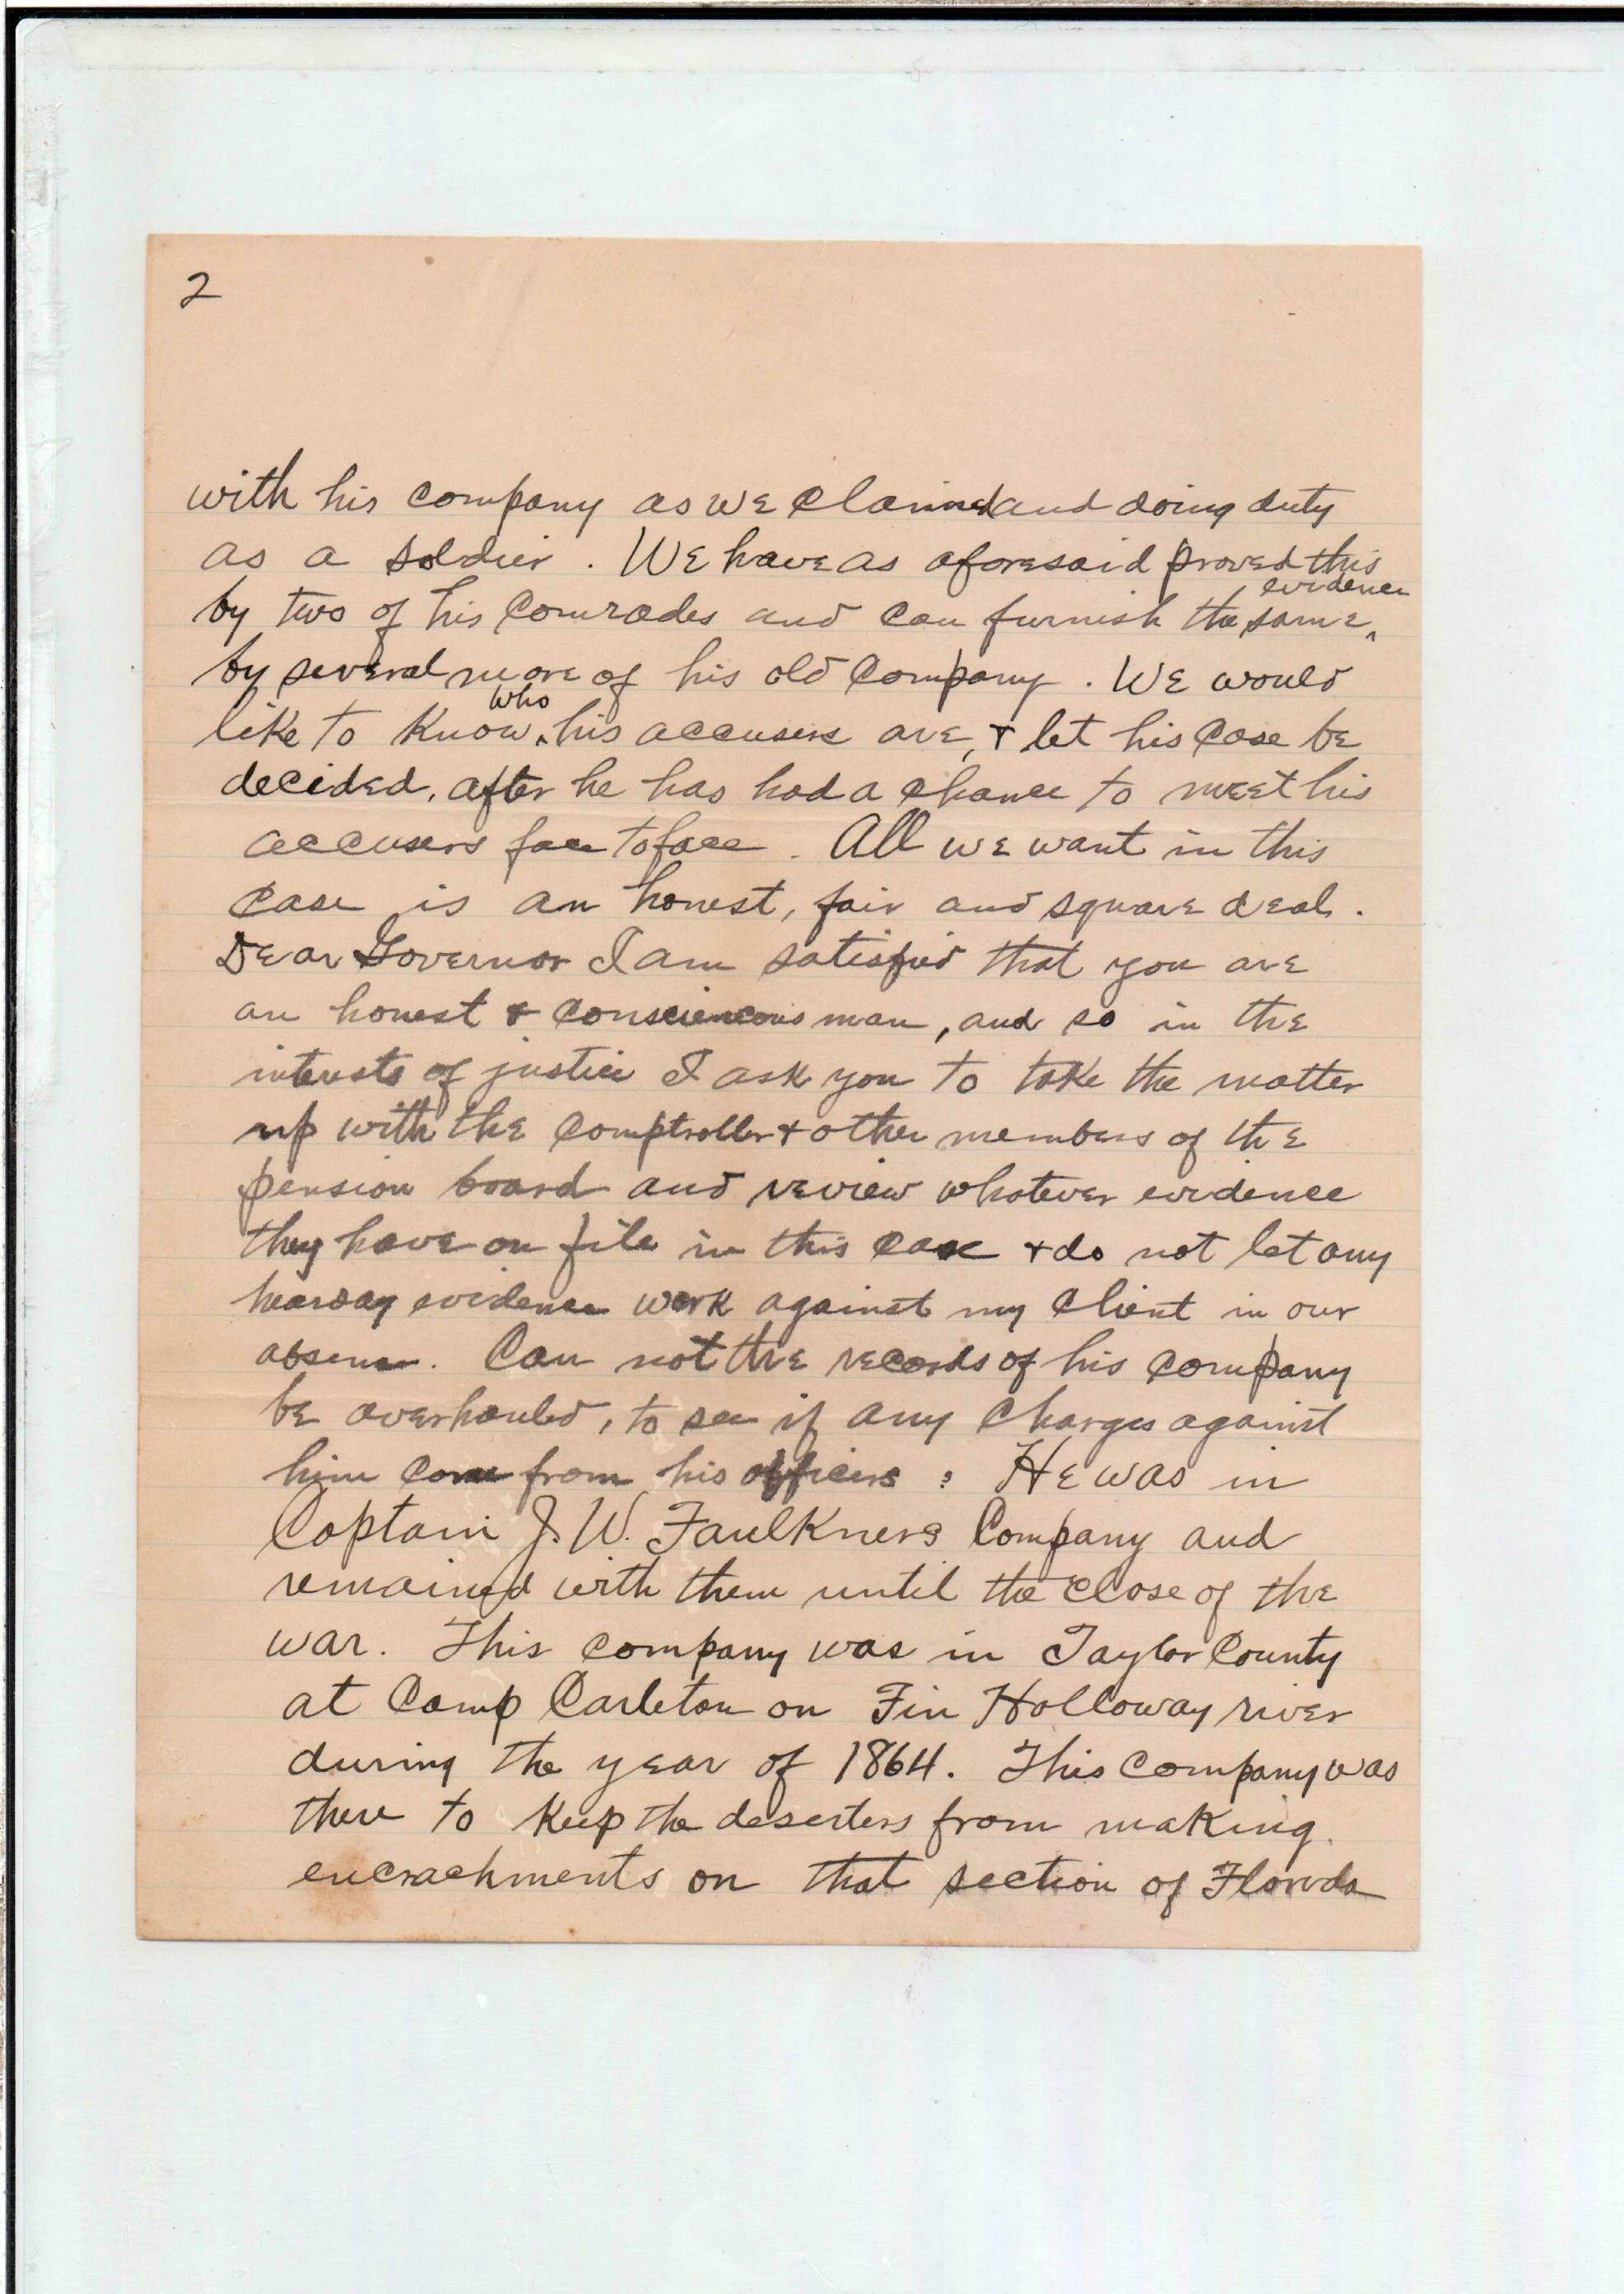 2
with his company as we claimed and doing duty
as a soldier. We have as aforesaid proved this
by two of his comrades and can furnish the same ^evidence
by several more of his old company. We would
like to know ^who his accusers are, & let his case be
decided, after he has had a chance to meet his
accusers face to face. All we want in this
case is an honest, fair and square deal.
Dear Governor I am satisfied that you are
an honest & consciencous man, and so in the
interests of justice I ask you to take the matter
up with the comptroller & other members of the
pension board and review whatever evidence
they have on file in this case & do not let any
hearsay evidence work against my client in our
absence. Can not the records of his company
be overhauled, to see if any charges against
him come from his officers: He was in
Captain J. W. Faulkners Company and
remained with them until the close of the
war. This company was in Taylor County
at Camp Carleton on Fin Holloway river
during the year of 1864. This company was
there to keep the deserters from making
encrachments on that section of Florida